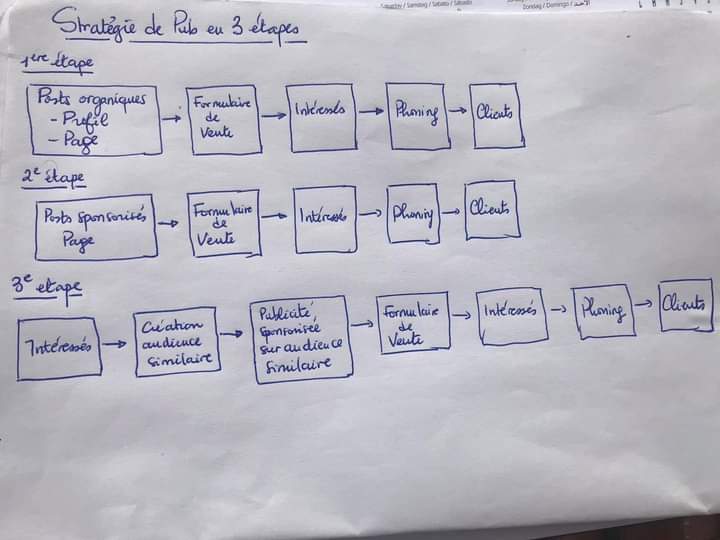 Samedi / Sabato / Sábado
Zondag / Domingo /
Stratégie de Pub en 3 étapes
1ère étape
Posts organiques
- Profil
- Page
Formulaire
de
Vente
Intéressés
Phoning
Clients
2e étape
Posts sponsorisés
Page
Formulaire
de
Vente
Intéressés
Phoning
Clients
3e etape
Intéressés
Création
audience
similaire
Publicité
sponsorisée
sur audience
similaire
Formulaire
de
Vente
Intéressés
Phoning
Clients